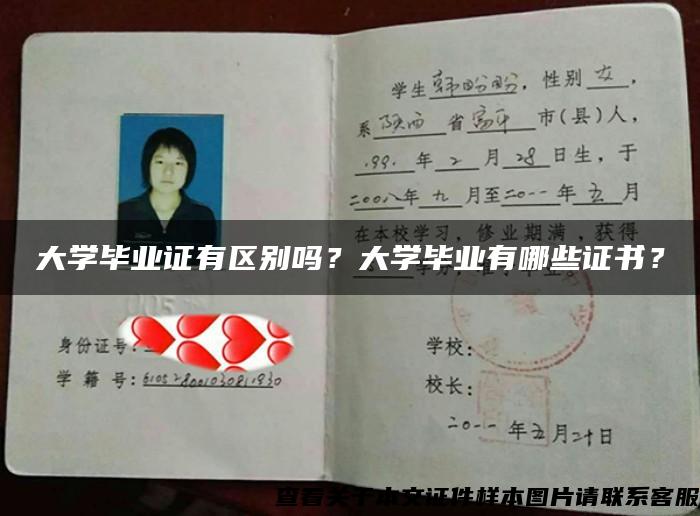 学生韩盼盼，性别女，
系陕西省富平市(县)人，
1991年2月28日生，于
二00八年九月至二0一一年五月
在本校学习，修业期满，获得
大学毕业证有区别吗？大学毕业有哪些证书？
身份证号：
学籍号：
学校：
校长：
二0一一年五月二十日
查看关于本文证件样本图片请联系客服